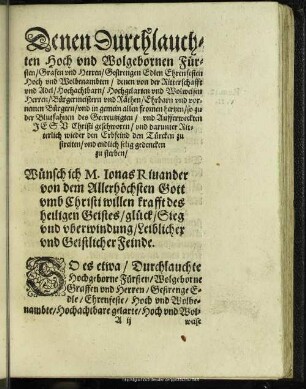 Denen Durchlauch-
ten Hoch vnd Wolgebornen Für-
sten/Grafen vnd Herren/Gestrengen Edlen Ehrenfesten
Hoch vnd Wolbenambten / denen von der Ritterschafft
vnd Adel/Hochachtbarn/Hochgelarten vnd Wolweisen
Herren/Bürgermeistern vnd Räthen/Ehrbarn vnd vor-
nemen Bürgern/vnd in gemein allen frommen hertzen/so zu
der Blutfahnen des Gecreutzigten / vnd Aufferweckten
JESV Christi geschworen / vnd darunter Rit-
terlich wieder den Erbfeind den Türcken zu
streiten/vnd endlich selig gedencken
zu sterben/
Wünsch ich M. Ionas Riuander
von dem Allerhöchsten Gott
vmb Christi willen krafft des
heiligen Geistes/glück/Sieg
vnd vberwindung/Leiblicher
vnd Geistlicher Feinde.
SO es etwa / Durchlauchte
Hochgeborne Fürsten/Wolgeborne
Graffen vnd Herren / Gestrenge E-
dle / Ehrenfeste / Hoch vnd Wolbe-
nambte/Hochachtbare gelarte/Hoch vnd Wol-
A ij
weise